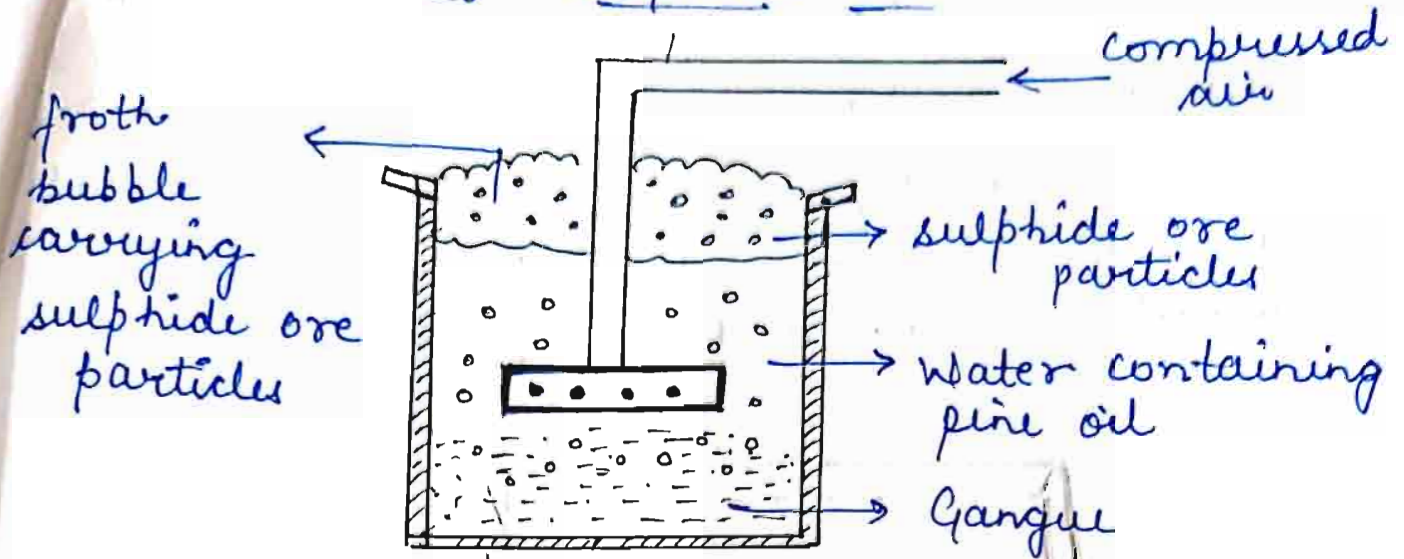 compressed
air
froth
bubble
carrying
sulphide ore
particles
sulphide ore
particles
Water containing
pine oil
Gangue